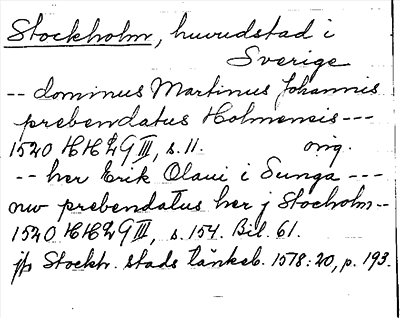 Stockholm, huvudstad i
Sverige
-- dominus Martinus Johannis
prebendatus Holmensis ---
1520 HHLG III, s. 11. orig.
-- her Erik Olaui i Sunga ---
nw prebendatus her j Stocholm --
1520 HHLG III, s. 154. Bil. 61.
jfr Stockh. stads tänkeb. 1578:20, p. 193.